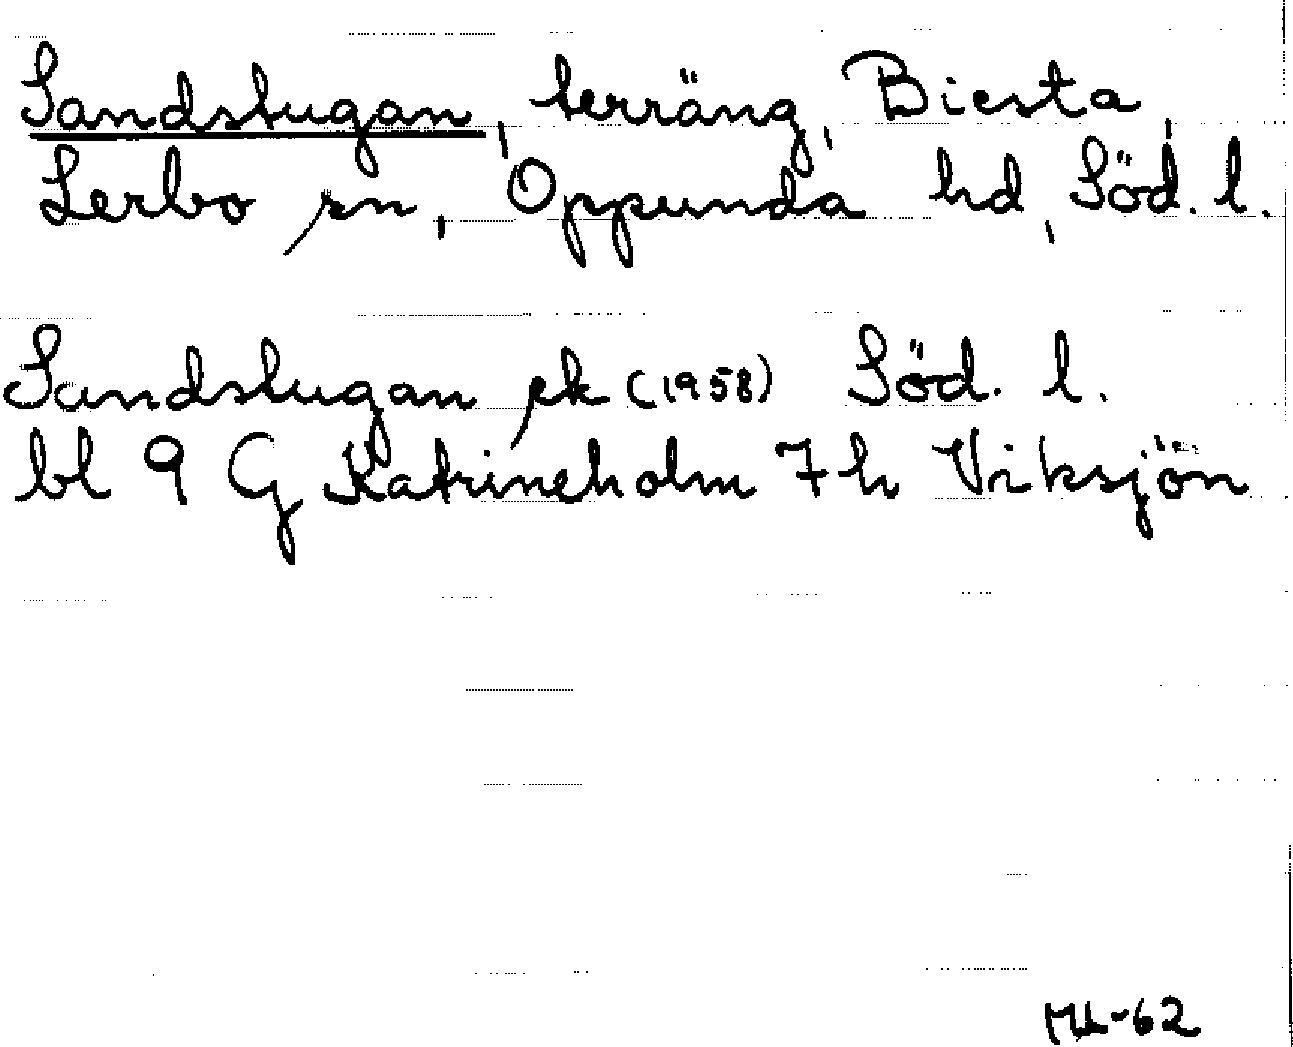 Sandstugan, terräng, Biesta,
Lerbo sn, Oppunda hd, Söd. l.
Sandstugan ek (1958) Söd. l.
bl 9 G Katrineholm 7h Viksjön
ML-62